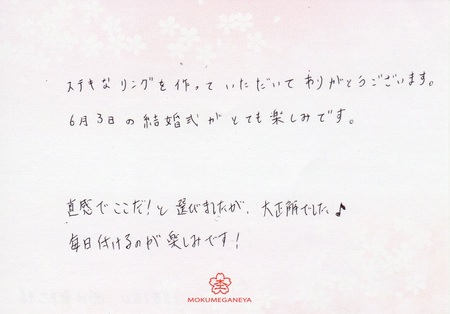 ステキなリングを作っていただいてありがとうございます。
6月3日の結婚式がとても楽しみです。
直感でここだ!と選びましたが、大正解でした♪
毎日付けるのが楽しみです!
MOKUMEGANEYA